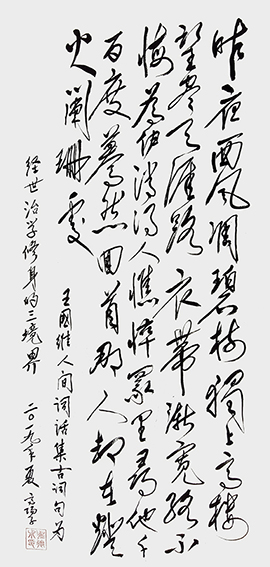 昨夜西风凋碧树獨上高楼
望尽天涯路衣帶漸寬終不
悔為伊消得人憔悴眾里尋他千
百度驀然回首那人却在燈
火闌珊處
王國維人间词话集古词句为
经世治学修身的三境界 二〇一九年夏